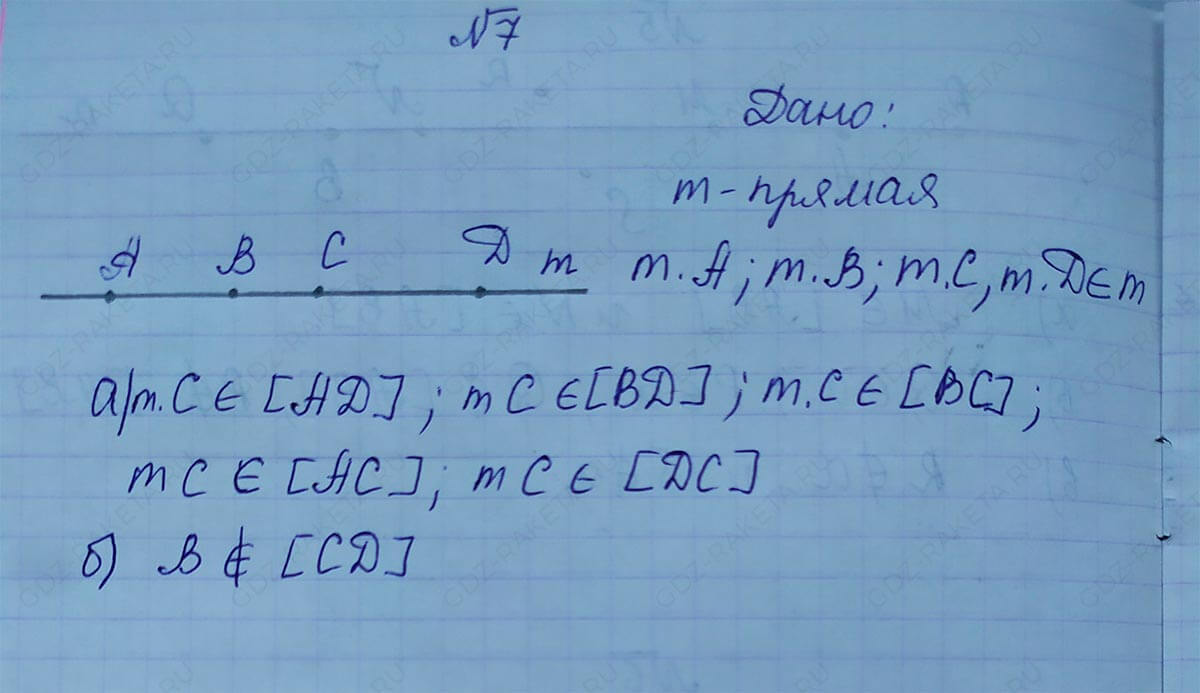 №7
Дано:
m - прямая
A B C D m
т. A; т. B; т. C, т. D ∈ m
а) т. C ∈ [AD]; т C ∈ [BD]; т. C ∈ [BC];
т C ∈ [AC]; т C ∈ [DC]
б) B ∉ [CD]
GDZ-RAKETA.RU